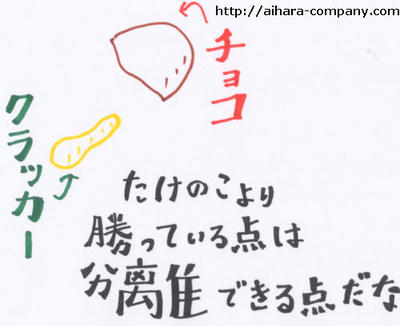 http://aihara-company.com
チョコ
クラッカー
たけのこより
勝っている点は
分離できる点だな